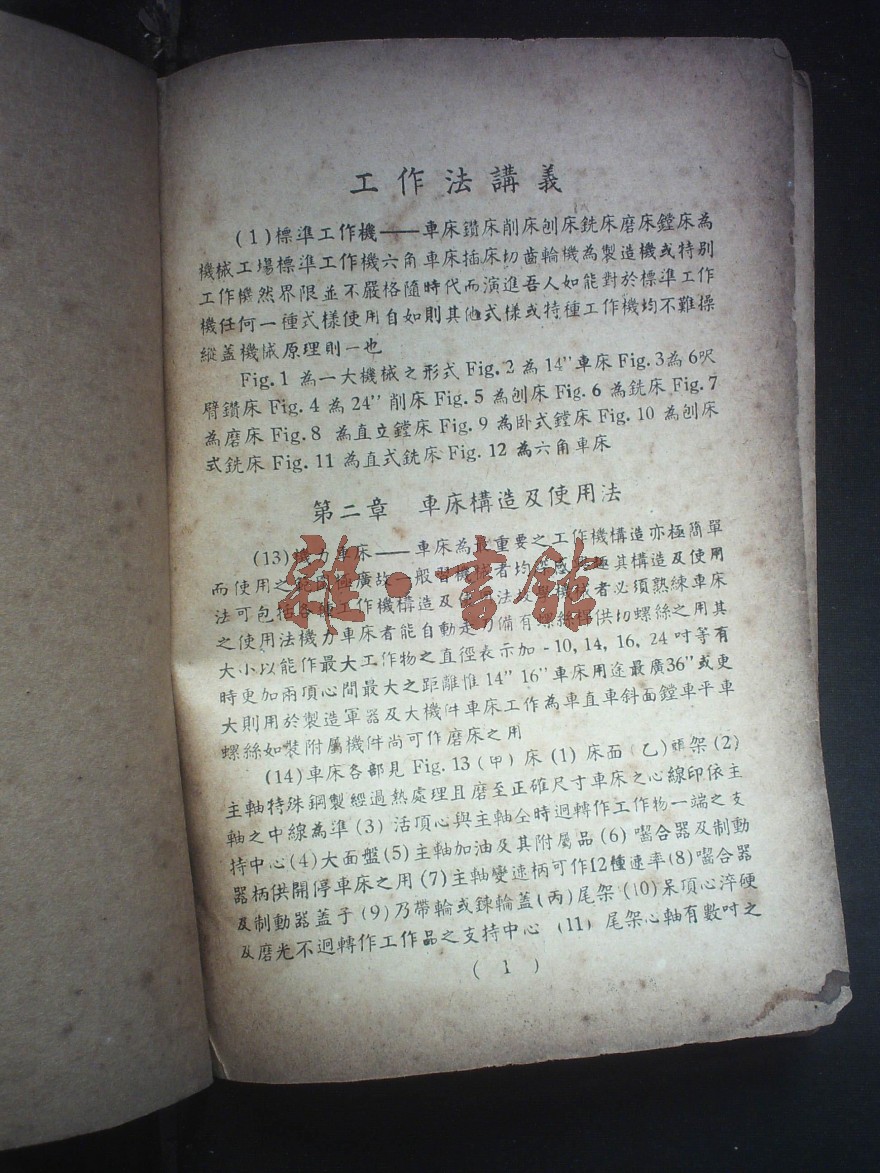 工作法講義
(1)標準工作機——車床鑽床削床刨床銑床磨床鏜床為
機械工場標準工作機六角車床插床切齒輪機為製造機或特别
工作機然界限並不嚴格隨時代而演進吾人如能對於標準工作
機任何一種式樣使用自如則其他式樣或特種工作機均不難操
縱蓋機械原理則一也
Fig. 1 為一大機械之形式 Fig. 2 為 14" 車床 Fig. 3 為 6 呎
臂鑽床 Fig. 4 為 24" 削床 Fig. 5 為刨床 Fig. 6 為銑床 Fig. 7
為磨床 Fig. 8 為直立鏜床 Fig. 9 為卧式鏜床 Fig. 10 為刨床
式銑床 Fig. 11 為直式銑床 Fig. 12 為六角車床
第二章 車床構造及使用法
(13)機力車床——車床為最重要之工作機構造亦極簡單
而使用之範圍極廣故一般習機械者均 極其構造及使用
法可包括各種工作機構造及使用法故習機械者必須熟練車床
之使用法機力車床者能自動走刀備有螺絲桿供切螺絲之用其
大小以能作最大工作物之直徑表示加 - 10, 14, 16, 24 吋等有
時更加兩頂心間最大之距離惟 14" 16" 車床用途最廣 36" 或更
大則用於製造軍器及大機件車床工作為車直車斜面鏜車平車
螺絲如裝附屬機件尚可作磨床之用
(14)車床各部見 Fig. 13 (甲) 床 (1) 床面 (乙) 頭架 (2)
主軸特殊鋼製經過熱處理且磨至正確尺寸車床之心線印依主
軸之中線為準 (3) 活頂心與主軸仝時迴轉作工作物一端之支
持中心 (4) 大面盤 (5) 主軸加油及其附屬品 (6) 嚙合器及制動
器柄供開停車床之用 (7) 主軸變速柄可作12種速率 (8) 嚙合器
及制動器蓋子 (9) 乃帶輪或鍊輪蓋 (丙) 尾架 (10) 呆頂心淬硬
及磨光不迴轉作工作品之支持中心 (11) 尾架心軸有數吋之
( 1 )
雜·書館